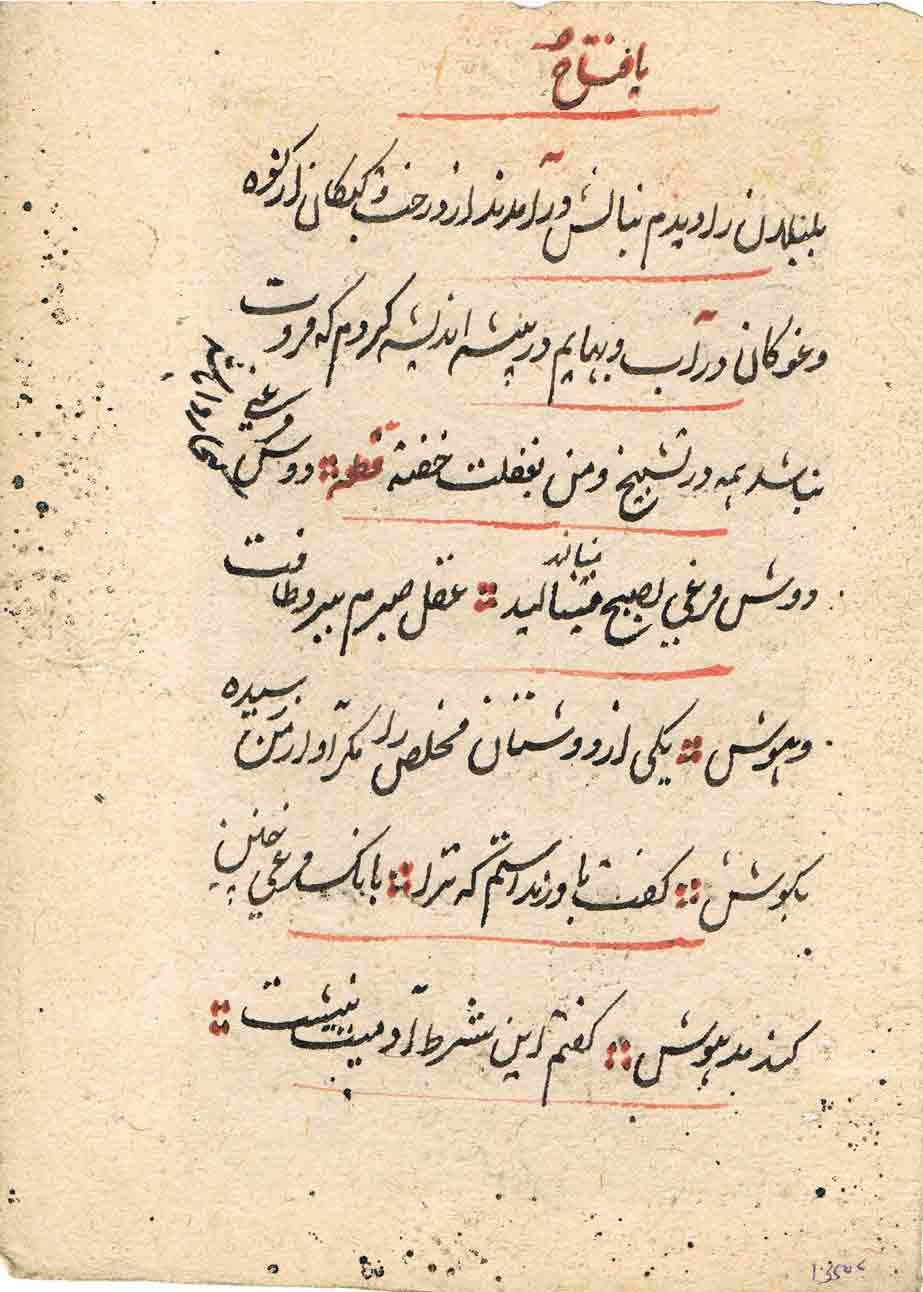 یا فتاح
بلبلان را دیدم بنالش در آمدند از درخت و کبکان از کوه
و غوکان در آب و بهایم در بیشه اندیشه کردم که مروت
نباشد همه در تسبیح و من بغفلت خفته قطعه دوش
دوش مرغی بصبح مینالید عقل صبرم ببرد و طاقت
و هوش یکی از دوستان مخلص را مگر آواز من رسیده
بگوش گفت باور نداشتم که ترا بانک مرغی چنین
کند مدهوش گفتم این شرط آدمیت نیست